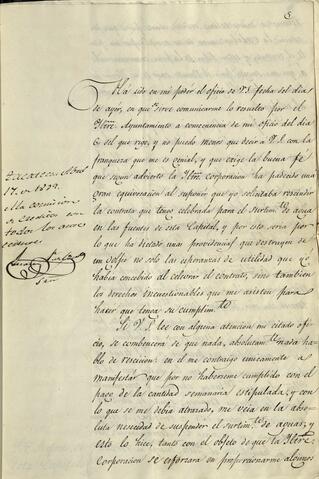 5
Ha sido en mi poder el oficio de V.S. fecha del dia
de ayer, en que sirve comunicarme lo resuelto por el
Ylltre. Ayuntamiento a consecuencia de mi oficio del dia
6 del que rige, y no puedo menos que decir a V.S. con la
franqueza que me es genial, y que exige la buena fé
que segun advierto la Yltre. corporacion ha padecido una
gran equivocacion al suponer que yo solicitaba rescindir
la contrata que tengo celebrada para el surtim.to de agua
en las fuentes de esta Capital, y por esto seria por
lo que ha dictado una providencia que destruyen de
un golpe no solo las esperanzas de utilidad que ne
habia concebido al celebrar el contrato, sino tambien
los derechos incuestionables que me asisten para
hacer que tenga su cumplim.to
Si V.S. lee con alguna atencion mi citado ofi-
cio, se combencera de que nada, absolutam.te nada ha-
blo de rescicion: en el me contraigo unicamente a
manifestar que por no haberseme cumplido con el
pago de la cantidad semanaria estipulada, y con
lo que se me debia atrasado, me veia en la abso-
luta necesidad de suspender el surtim.to de aguas, y
esto lo hice, tanto con el objeto de que la Yltre.
Corporacion se esforzara en proporcionarme algunos
Zacatecas
17. de 1839.
A la comision
de
todos los